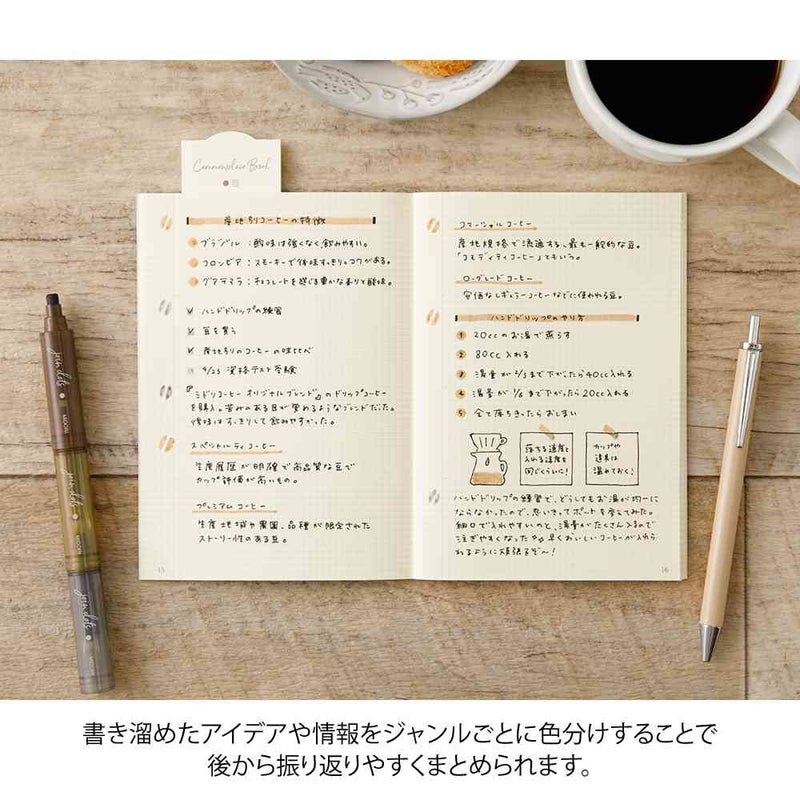 Commonplace Book
産地別コーヒーの特徴
ブラジル：酸味は強くなく飲みやすい。
コロンビア：スモーキーで後味すっきり。コクがある。
グアテマラ：チョコレートを感じる豊かな香りと酸味。
ハンドドリップの練習
豆を買う
産地別のコーヒーの味比べ
9/23 資格テスト受験
『ミドリコーヒー オリジナルブレンド』のドリップコーヒー
を購入。苦みのある目が覚めるようなブレンドだった。
後味はすっきりして飲みやすかった。
スペシャルティコーヒー
生産履歴が明確で高品質な豆で
カップ評価が高いもの。
プレミアムコーヒー
生産地域や農園、品種が限定された
ストーリー性のある豆。
15
コマーシャルコーヒー
産地規格で流通する、最も一般的な豆。
「コモディティコーヒー」ともいう。
ローグレードコーヒー
安価なレギュラーコーヒーなどに使われる豆。
ハンドドリップのやり方
1 20ccのお湯で蒸らす
2 80cc入れる
3 湯量が2/3まで下がったら40cc入れる
4 湯量が まで下がったら20cc入れる
5 全て落ちきったらおしまい
落ちる速度と
入れる速度を
同じくらいに！
カップや
道具は
温めておく！
ハンドドリップの練習で、どうしてもお湯が均一に
ならなかったので、思いきってポットを考えてみた。
細口で入れやすいのと、湯量がたくさん入るので
注ぎやすくなった 早くおいしいコーヒーが入れら
れるように頑張るぞ〜！
16
join dots
MIDORI
join dots
MIDORI
join dots
MIDORI
書き溜めたアイデアや情報をジャンルごとに色分けすることで
後から振り返りやすくまとめられます。